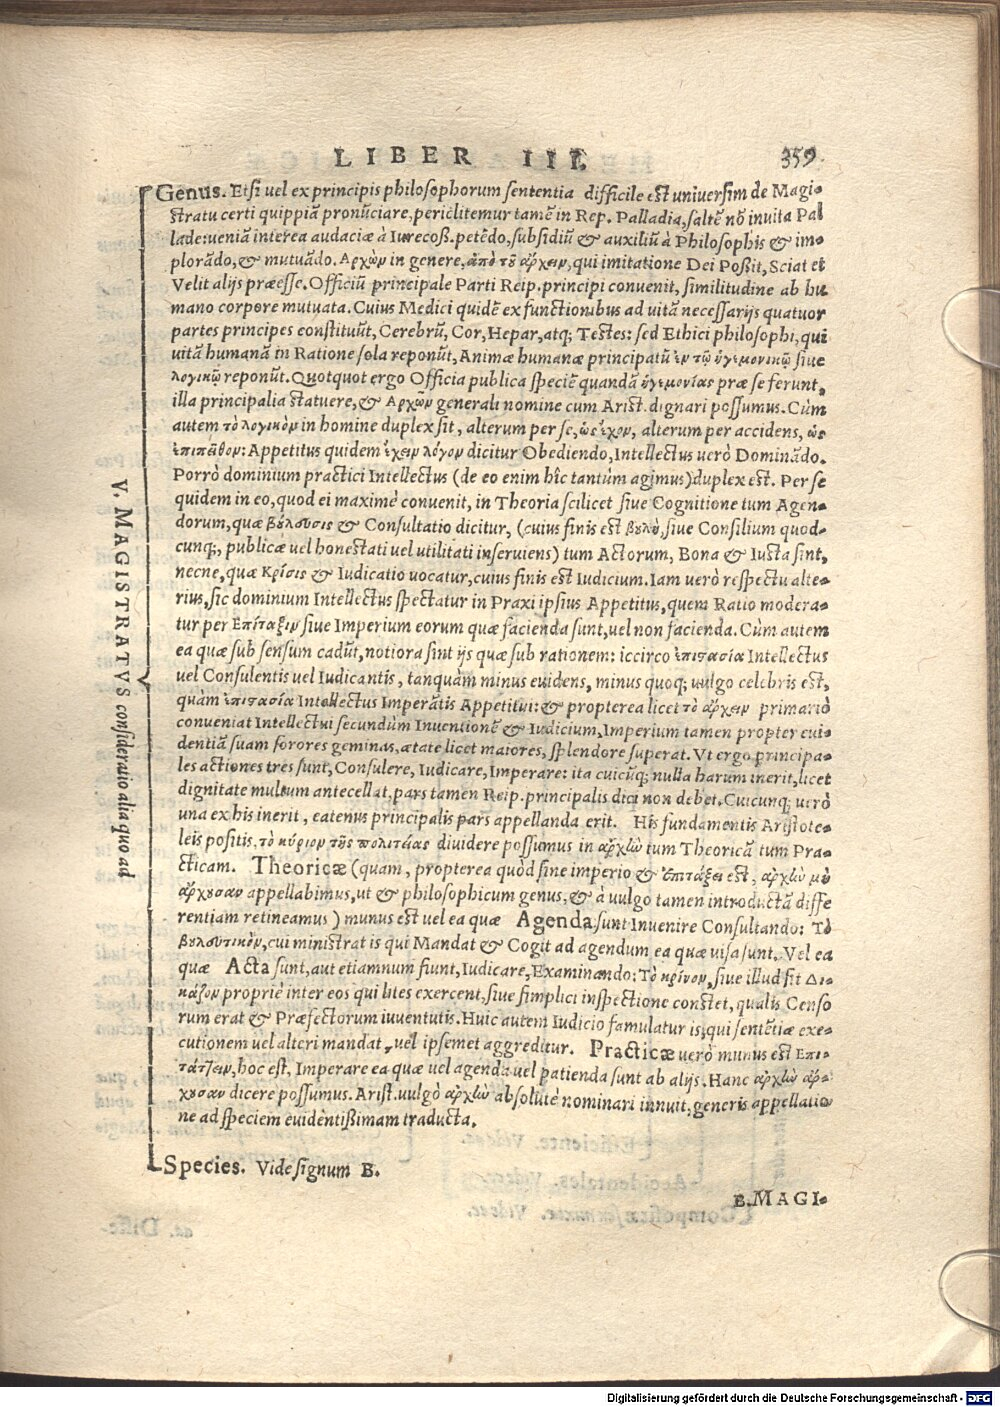 LIBER III. 359
V. MAGISTRATVS consideratio alia quo ad
Genus. Etsi uel ex principis philosophorum sententia difficile est universim de Magi-
stratu certi quippiã pronũciare, periclitemur tamẽ in Rep. Palladia, saltẽ nõ inuita Pal
lade: ueniã interea audaciæ à Iurecoß. petẽdo, subsidiũ & auxiliũ à Philosophis & im-
plorãdo, & mutuãdo. Αρχὼν in genere, ἀπὸ τȣ͂ ἄρχειν, qui imitatione Dei Poßit, Sciat et
Velit alijs præesse. Officiũ principale Parti Reip. principi convenit, similitudine ab hu
mano corpore mutuata. Cuius Medici quidẽ ex functionibus ad uitã necessarijs quatuor
partes principes constituũt, Cerebrũ, Cor, Hepar, atq; Testes: sed Ethici philosophi, qui
uitã humanã in Ratione sola reponũt, Animæ humanæ principatũ ἐν τῷ ἡγεμονικῷ siue
λογικῷ reponũt. Quotquot ergo Officia publica speciẽ quandã ἡγεμονίας præ se ferunt,
illa principalia statuere, & Αρχῶν generali nomine cum Arist. dignari possumus. Cùm
autem τὸ λογικὸν in homine duplex sit, alterum per se, ὡς ἔχον, alterum per accidens, ὡς
ἐπιπειθὸν: Appetitus quidem ἔχειν λόγον dicitur Obediendo, Intellectus uerò Dominãdo.
Porrò dominium practici Intellectus (de eo enim hîc tantùm agimus) duplex est. Per se
quidem in eo, quod ei maximè convenit, in Theoria scilicet siue Cognitione tum Agen-
dorum, quæ βȣ́λευσις & Consultatio dicitur, (cuius finis est βȣλὴ, siue Consilium quod-
cunq;, publicæ uel honestati uel utilitati inseruiens) tum Actorum, Bona & Iusta sint,
necne, quæ Κρίσις & Iudicatio uocatur, cuius finis est Iudicium. Iam uerò respectu alte-
rius, sic dominium Intellectus spectatur in Praxi ipsius Appetitus, quem Ratio modera-
tur per Επίταξιν siue Imperium eorum quæ facienda sunt, uel non facienda. Cùm autem
ea quæ sub sensum cadũt, notiora sint ijs quæ sub rationem: iccirco ἐπιστασία Intellectus
uel Consulentis uel Iudicantis, tanquàm minus euidens, minus quoq; uulgo celebris est,
quàm ἐπιστασία Intellectus Imperãtis Appetitui: & propterea licet τὸ ἄρχειν primariò
conueniat Intellectui secundùm Inuentionẽ & Iudicium, Imperium tamen propter eui-
dentiã suam sorores geminas, ætate licet maiores, splendore superat. Vt ergo principa-
les actiones tres sunt, Consulere, Iudicare, Imperare: ita cuicũq; nulla harum inerit, licet
dignitate multum antecellat, pars tamen Reip. principalis dici non debet. Cuicunq; uerò
una ex his inerit, eatenus principalis pars appellanda erit. His fundamentis Aristote-
leis positis, τὸ κύριον τῆς πολιτείας diuidere possumus in ἀρχὴν tum Theoricã tum Pra-
cticam. Theoricæ (quam, propterea quòd sine imperio & ἐπιτάξει est, ἀρχὴν μὴ
ἄρχȣσαν appellabimus, ut & philosophicum genus, & à uulgo tamen introductã diffe
rentiam retineamus) munus est uel ea quæ Agenda sunt Inuenire Consultando: Τὸ
βȣλευτικὸν, cui ministrat is qui Mandat & Cogit ad agendum ea quæ uisa sunt. Vel ea
quæ Acta sunt, aut etiamnum fiunt, Iudicare, Examinando: Τὸ κρίνον, siue illud sit Δι-
κάζον propriè inter eos qui lites exercent, siue simplici inspectione constet, qualis Censo
rum erat & Præfectorum iuuentutis. Huic autem Iudicio famulatur is, qui sentẽtiæ exe-
cutionem uel alteri mandat, uel ipsemet aggreditur. Practicæ uerò munus est Επι-
τάτ7ειν, hoc est, Imperare ea quæ uel agenda uel patienda sunt ab alijs. Hanc ἀρχὴν ἄρ-
χȣσαν dicere possumus. Arist. uulgò ἀρχὴν absolutè nominari innuit, generis appellatio
ne ad speciem euidentißimam traducta.
Species. Vide signum B.
B. MAGI-
Digitalisierung gefördert durch die Deutsche Forschungsgemeinschaft - DFG